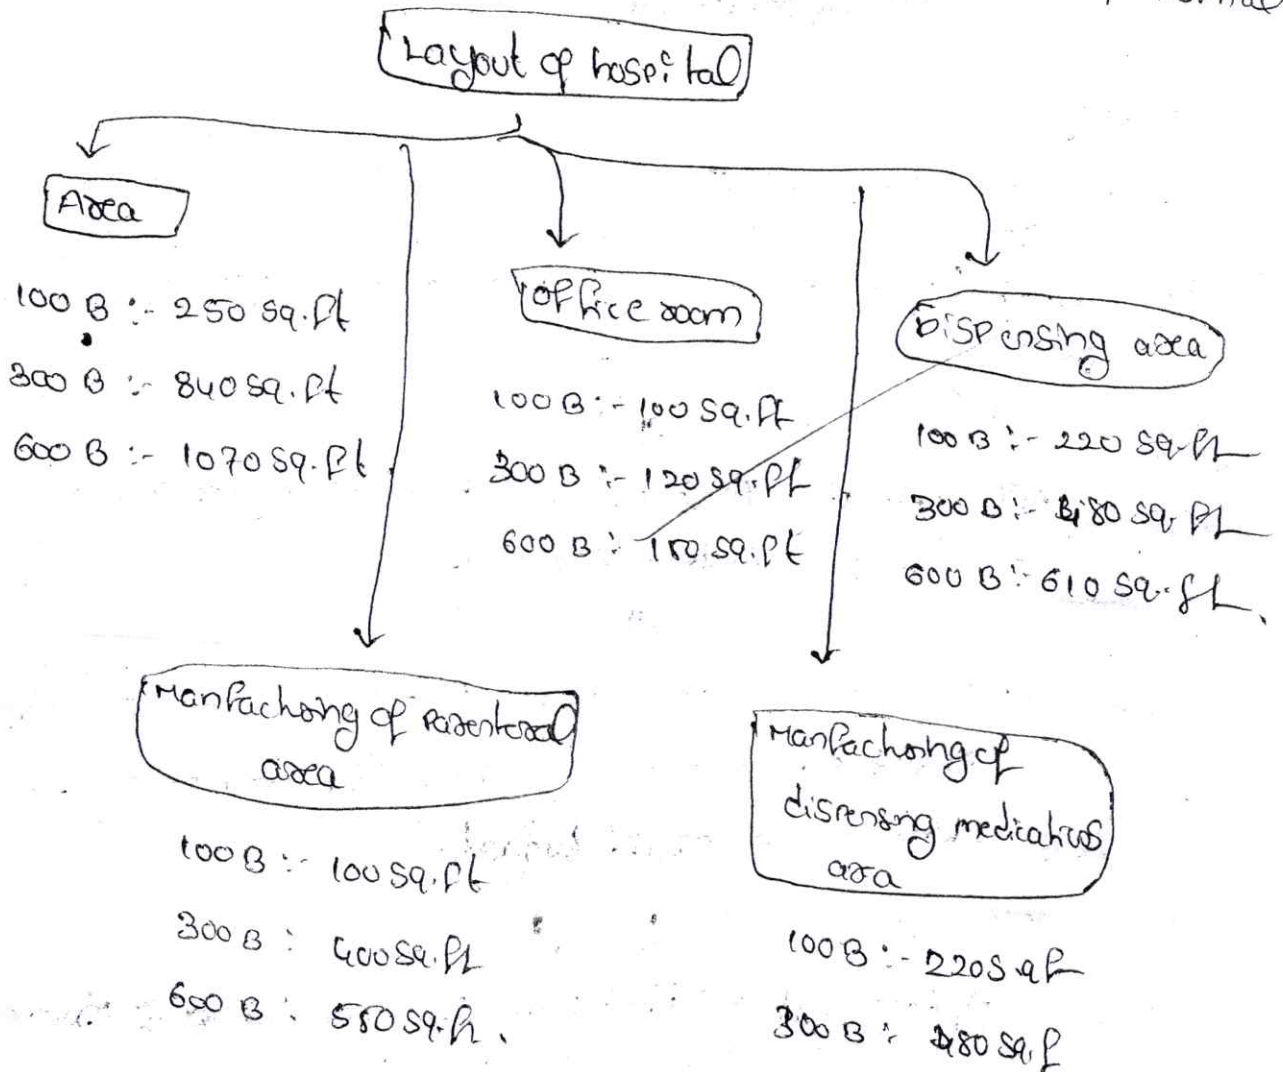 Layout of hospital
Area
100 B :- 250 sq.ft
300 B :- 840 sq.ft
600 B :- 1070 sq.ft
office room
100 B :- 100 sq.ft
300 B :- 120 sq.ft
600 B : sq.ft
Dispensing area
100 B :- 220 sq.ft
300 B :- 480 sq.ft
600 B :- 610 sq.ft.
Manfachoring of Parenteral
area
100 B :- 100 sq.ft
300 B : 400 sq.ft
600 B : sq.ft.
Manfachoring of
dispensing medications
ara
100 B :- 220 sqft
300 B : 480 sq.f